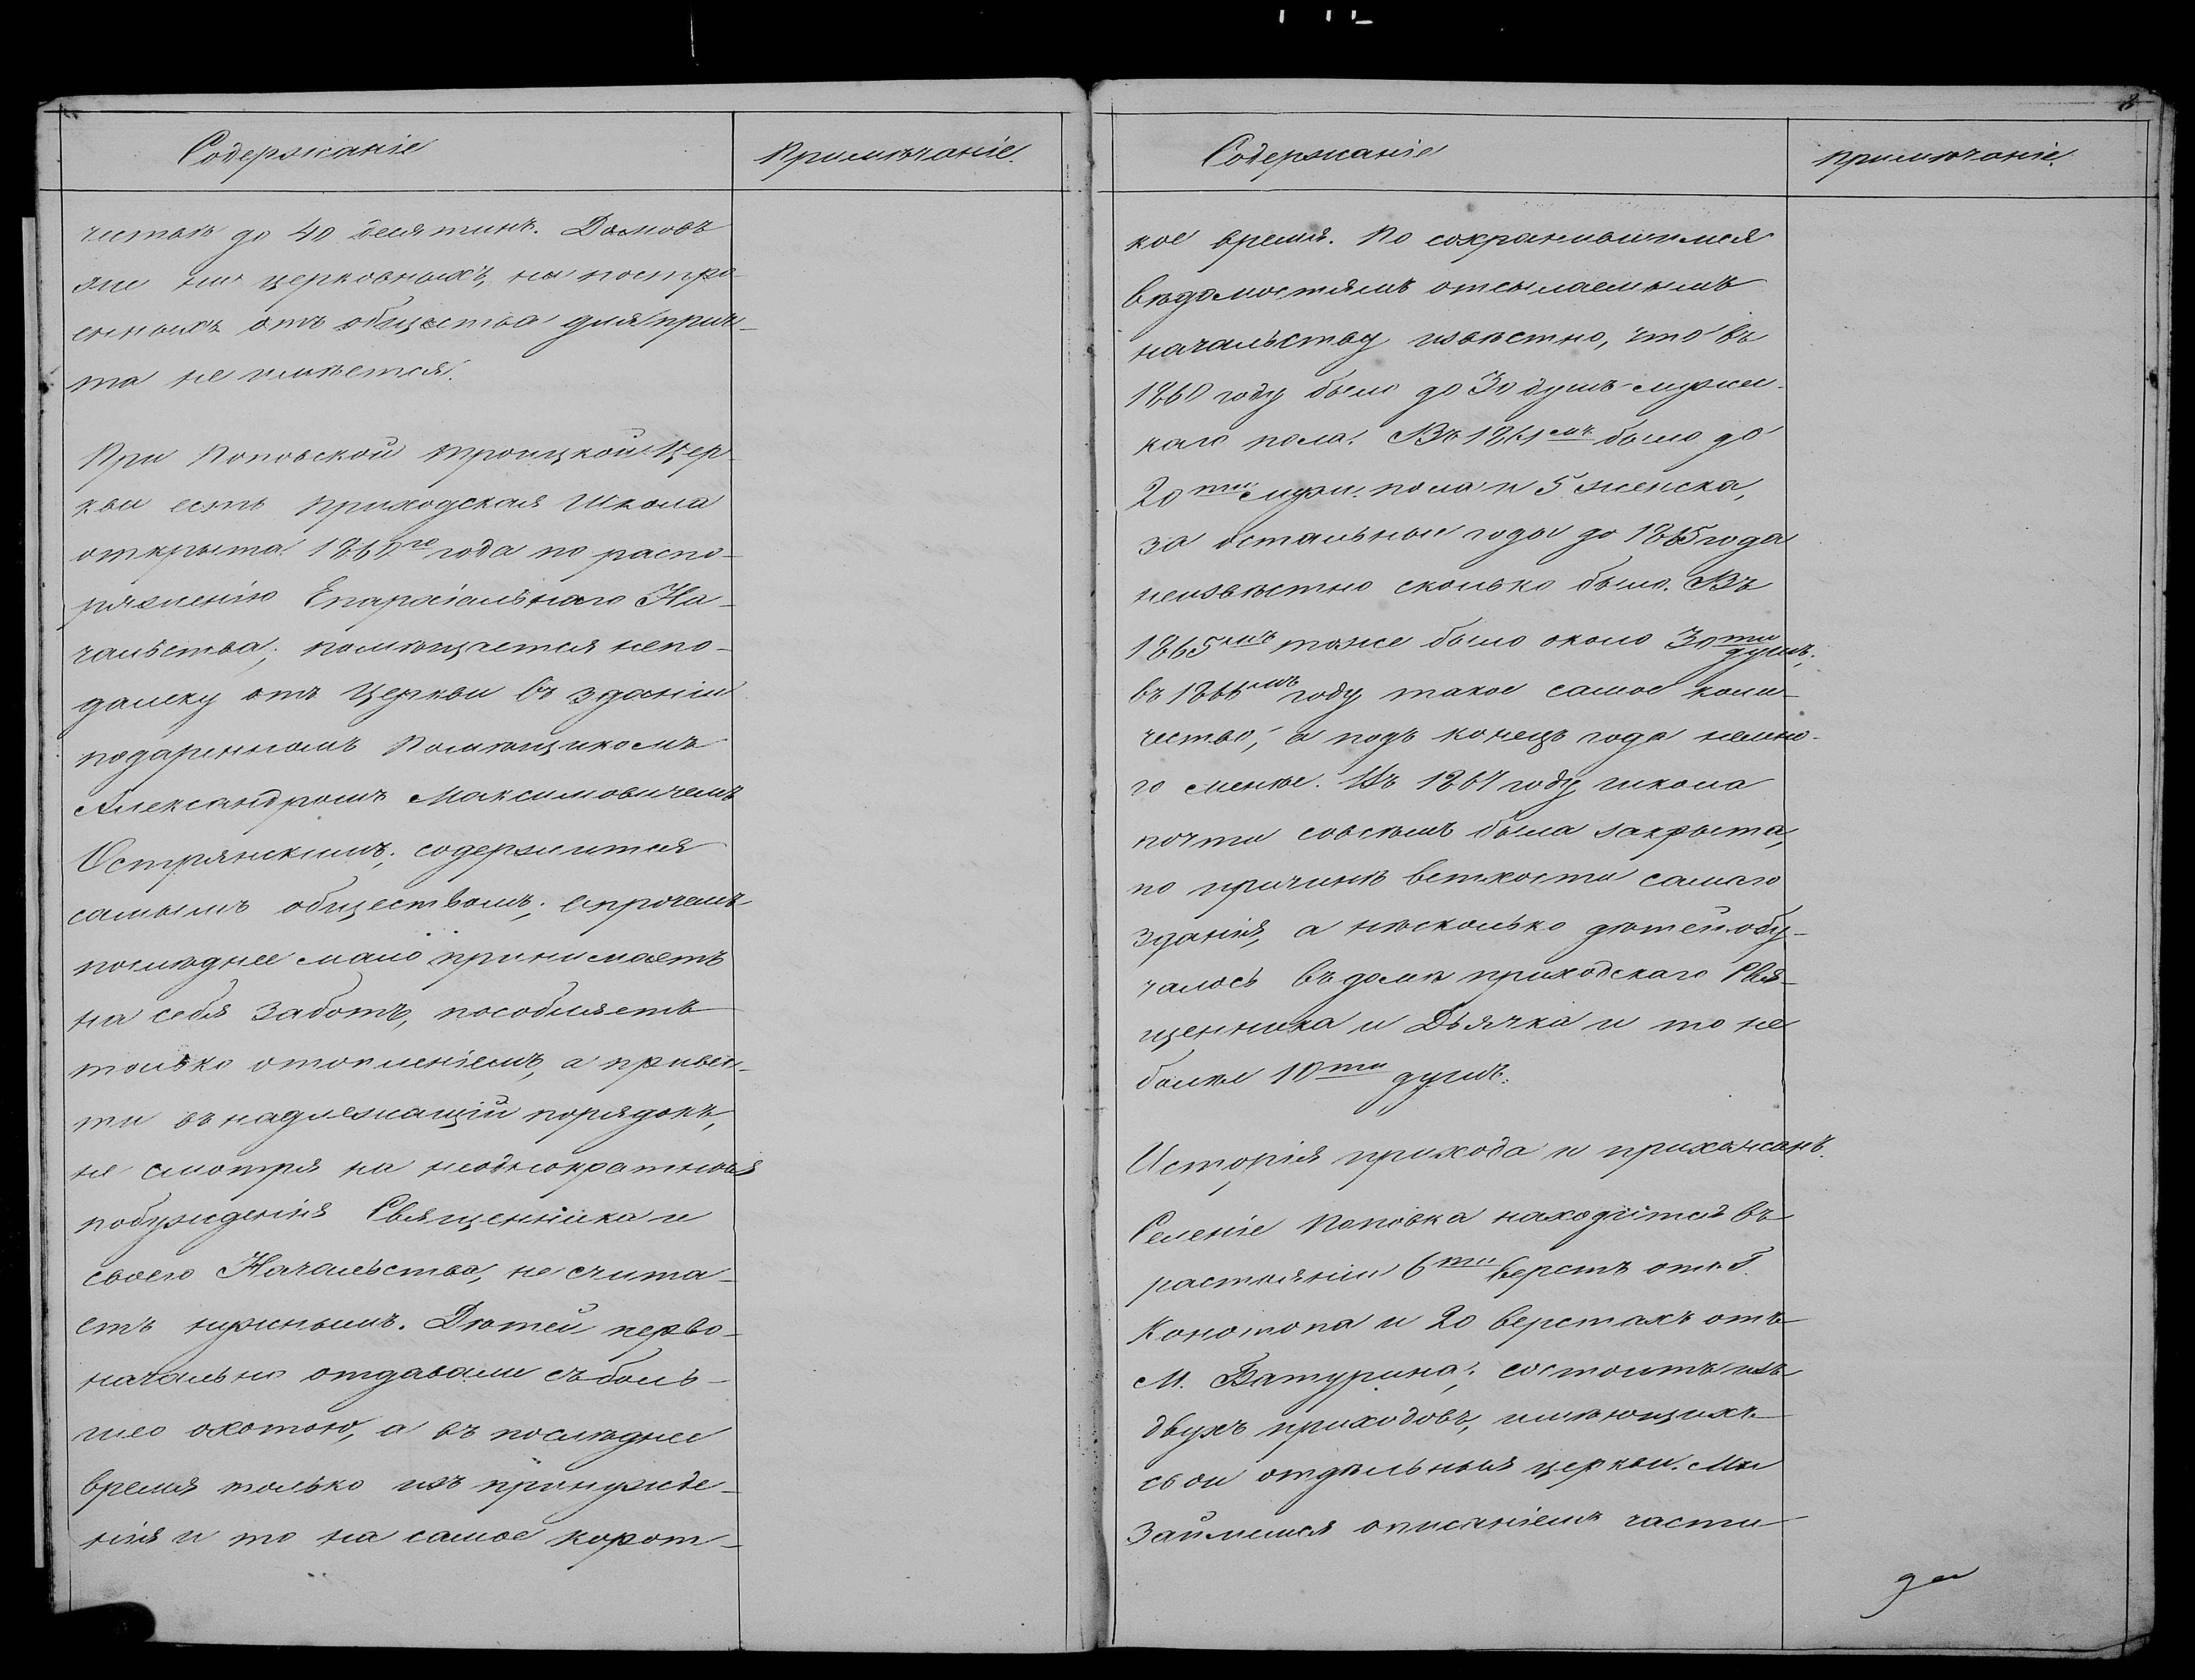 Содержаніе
Примѣчаніе.
честью до 40 десятинъ. Домовъ
же ни церковныхъ, ни постро-
енныхъ отъ общества для прич-
та не имѣется.
При Поповской Троицкой Цер-
кви есть приходская Школа
открыта 1860го года по распо-
ряженію Епархіальнаго На-
чальства; помѣщается непо-
далеку отъ Церкви въ зданіи
подаренномъ Помѣщикомъ
Александромъ Максимовичемъ
Острянскимъ; содержится
самымъ обществомъ; впрочемъ
послѣднее мало принимаетъ
на себя заботъ, пособляетъ
только отопленіемъ, а привес-
ти въ надлежащій порядокъ,
не смотря на неоднократныя
побужденія Священника и
своего Начальства, не счита-
етъ нужнымъ. Дѣтей перво-
начально отдавали съ боль-
шею охотою, а въ послѣднее
время только изъ принужде-
нія и то на самое корот-
8
Содержаніе
Примѣчаніе.
кое время. По сохранившимся
вѣдомостямъ отсылаемымъ
начальству извѣстно, что въ
1860 году было до 30 душъ мужес-
каго пола. Въ 1861мъ было до
20ти муж. пола и 5 женска,
за остальные годы до 1865 года
неизвѣстно сколько было. Въ
1865мъ тоже было около 30ти душъ;
въ 1866мъ году такое самое коли-
чество, а подъ конецъ года немно-
го менѣе. Въ 1867 году школа
почти совсѣмъ была закрыта,
по причинѣ ветхости самаго
зданія, а нѣсколько дѣтей обу-
чалось въ домѣ приходскаго Свя-
щенника и Дьячка и то не
болѣе 10ти душъ.
Исторія прихода и прихожанъ.
Селеніе Поповка находится въ
растояніи 6ти верстъ отъ Г.
Конотопа и 20 верстахъ отъ
М. Батурина; состоитъ изъ
двухъ приходовъ, имѣющихъ
свои отдѣльныя церкви. Мы
займемся описаніемъ части